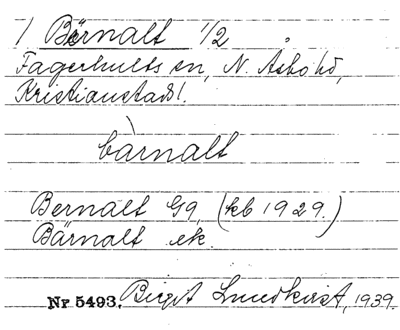 / Bärnalt 1/2
Fagerhults sn, N. Åsbo hd,
Kristianstads l.
bàrnalt
Bernalt Gg, (kb 1929.)
Bärnalt ek.
Nr 5493. Birgit Lundkvist, 1939.